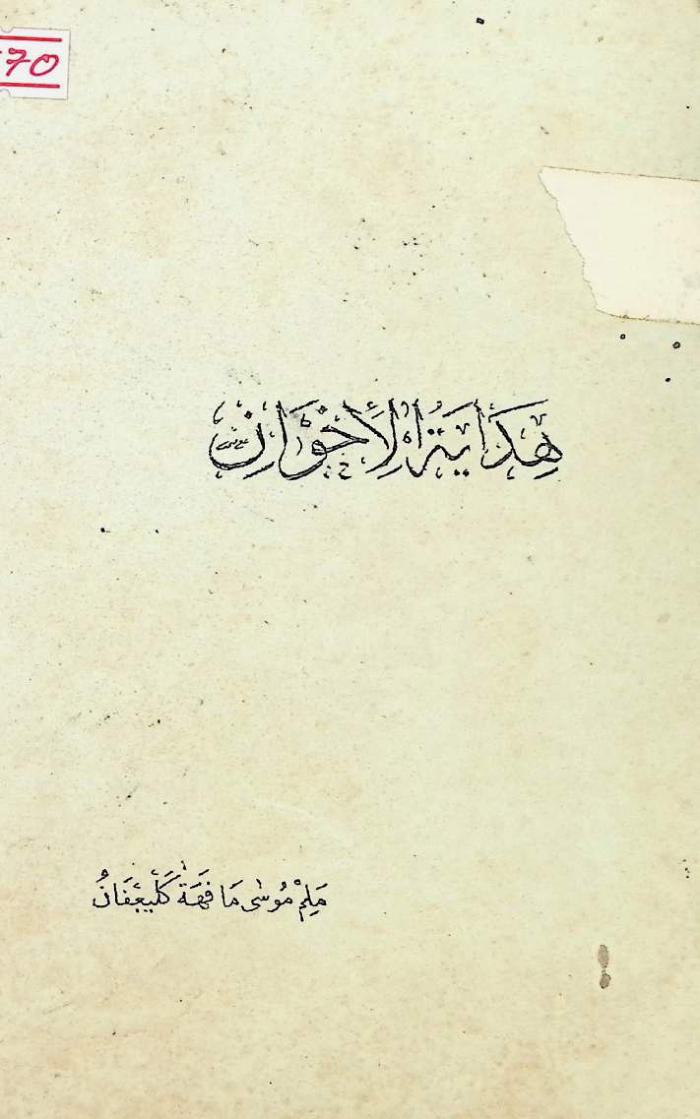 70
هِدَايَةُ الِأَخْوَانِ
مَلِمْ مُوسٰى مَا فَهَةٰ كَلَيعِڢَانُ